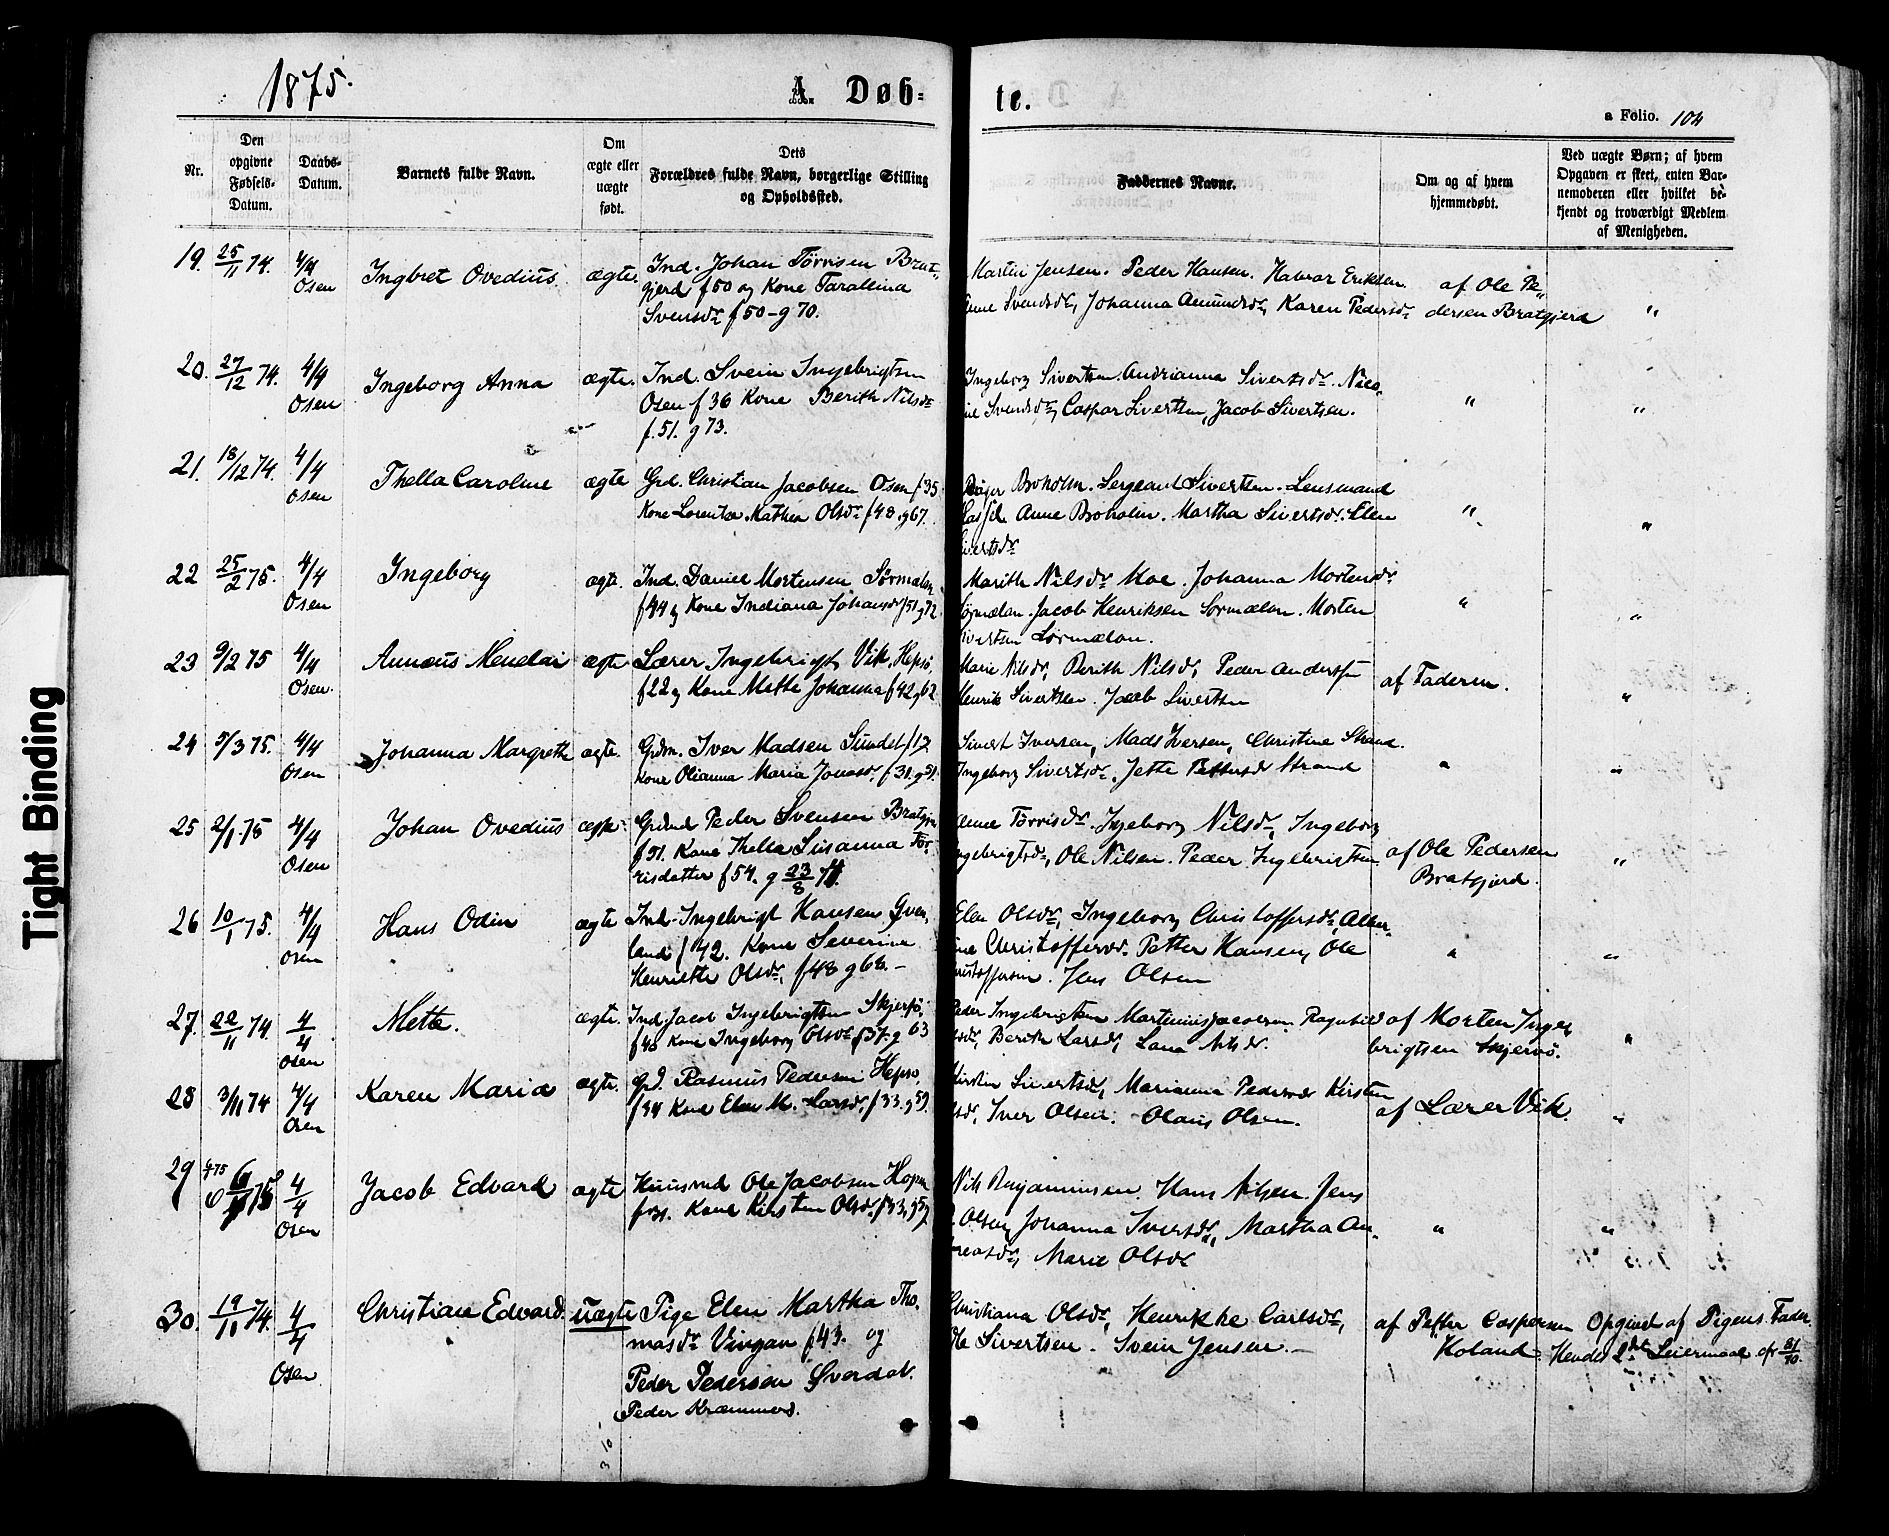 1875.
A. Døb-
te.
a Folio. 104
Nr.
Den opgivne Fødsels-Datum.
Daabs-Datum.
Barnets fulde Navn.
Om ægte eller uægte født.
Dets Forældres fulde Navn, borgerlige Stilling og Opholdssted.
Faddernes Navne.
Om og af hvem hjemmedøbt.
Ved uægte Børn; af hvem Opgaven er skeet, enten Barnemoderen eller hvilket bekjendt og troværdigt Medlem af Menigheden.
19. 25/11 74. 4/4 Osen Ingbret Ovedius. ægte. Ind. Johan Törrisen Brat-
gjerd f 50 og Kone
Svensdr f 50 - g 70.
Martin Jensen. Peder Hansen. Havar Eriksen af Ole Pe-
Svendsdr, Johanna Amundsdr, Karen Pedersdr dersen Bratgjerd "
20. 27/12 74. 4/4 Osen Ingeborg Anna ægte. Ind. Svein Ingebrigtsen
Osen f 36 Kone Berith Nilsdr
f. 51. g 73.
Ingeborg Sivertsen. Andrianna Sivertsdr.
Svendsdr, Caspar Sivertsen, Jacob Sivertsen. " "
21. 18/12 74. 4/4 Osen Thella Caroline ægte Grd. Christian Jacobsen Osen f 35
Kone Lorentza Mathea Olsdr f 48. g 67.
Broholm. Sergeant Sivertsen. Lensmand
Anne Broholm. Martha Sivertsdr. Elen
" "
22 25/2 75. 4/4 Osen Ingeborg ægte. Ind. Daniel Mortensen Sörmelan
f 44 og Kone Indiana Johansdr f 51 g 72.
Marith Nilsdr Moe. Johanna Mortensdr
Jacob Henriksen Sormelan. Morten
Sörmelan. " "
23 9/2 75 4/4 Osen. Annæus Mendar ægte Lærer Ingebrigt Vik, Hepsö,
f 22 og Kone Mette Johanna f 42 g 62
Marie Nilsdr, Berith Nilsdr, Peder
Henrik Sivertsen. Jacob Sivertsen
af Faderen. "
24 5/3 75. 4/4 Osen Johanna Margrethe ægte. Grdm. Iver Madsen Sundet f 17
Kone Olianna Maria Jonasdr, f 31. g 51.
Sivert Iversen, Mads Iversen, Christine Strand.
Ingeborg Sivertsdr. Jette Pettersdr Strand " "
25 2/1 75 4/4 Osen Johan Ovedius ægte. Grdmd Peder Svensen
f 51. Kone Thella Susanna Tör-
risdatter f 54. g 23/8 74.
Törrisdr. Ingeborg Nilsdr, Ingeborg
Ole Nilsen. Peder Ingebrigtsen.
af Ole Pedersen
Bratgjerd. "
26 10/1 75. 4/4 Osen Hans Odin ægte Ind. Ingebrigt Hansen
land f 42. Kone Severine
Henriette Olsdr, f 48 g 68. -
Elen Olsdr, Ingeborg Christoffersdr,
Christoffersdr. Petter Hansen, Ole
Jens Olsen " "
27. 22/11 74. 4/4 Osen Mette. ægte. Ind. Jacob Ingebrigtsen Skjervö,
f 40 Kone Ingeborg Olsdr f 37. g 63
Peder Ingebrigtsen Martinus Jacobsen Ragnhild
Berith Larsdr, Lana Nilsdr.
af Morten Inge-
brigtsen Skjervö. "
28 3/11 74 4/4 Osen Karen Maria ægte. Grd. Rasmus Pedersen Hepsö,
f 34 Kone Elen M. Larsdr, f 33. g 59.
Kirstin Sivertsdr, Marianna Pedersdr Kirsten
Iver Olsen. Olaus Olsen.
af Lærer Vik. "
29 75 4/4 Osen Jacob Edvard ægte Huusmd Ole Jacobsen
Kone Kirsten Olsdr.
Nils Benjaminsen. Hans Nilsen. Jens
Olsen, Johanna Iversdr, Martha An-
dreasdr, Marie Olsdr
" "
30. 74. 4/4 Osen. Christian Edvard. uægte Pige Elen Martha Tho-
masdr Vingan f 43. og
Peder Pedersen Sverdal.
Peder Kræmmers.
Christiana Olsdr, Henrikke Carlsdr,
Ole Sivertsen. Svein Jensen. -
af Petter Caspersen
Holand.
Opgivet af Pigens Fader.
Hendes 2det Leiermaal
3 10
Tight Binding